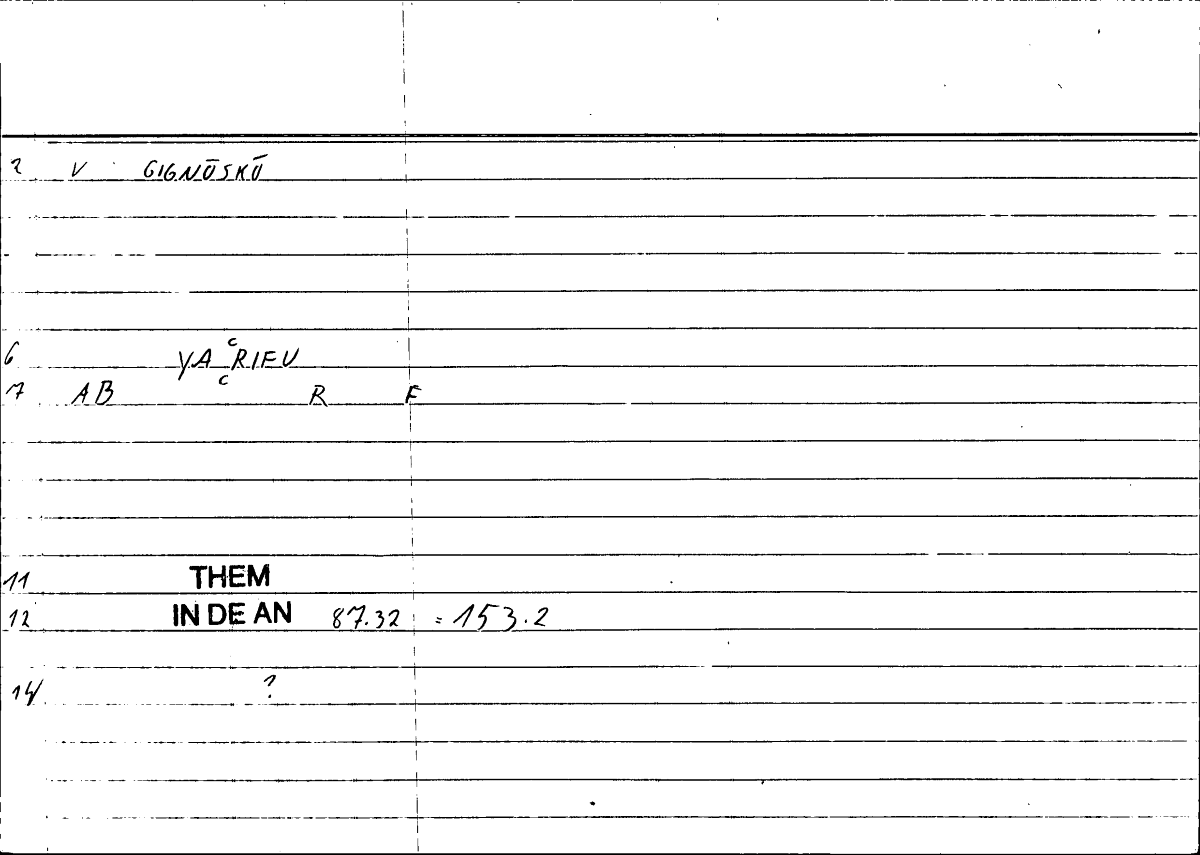 2 V GIGNŌSKŌ
6 YA C C RIEU
7 AB R F
11 THEM
12 IN DE AN 87.32 = 153.2
14 ?